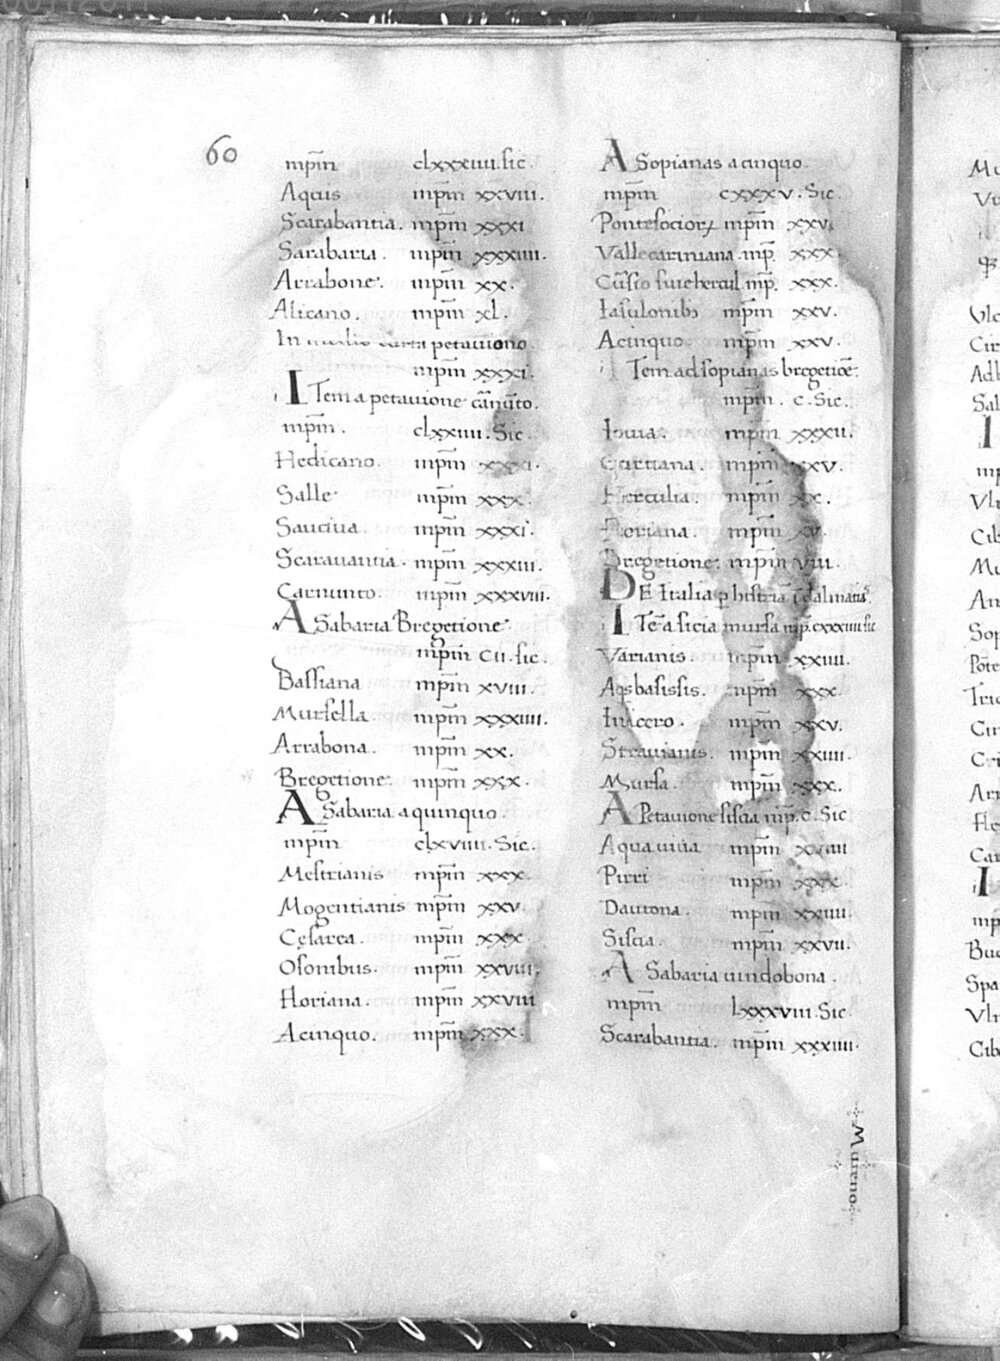 60
mp̄m clxxxiiii. sic.
Aquis mp̄m xxviii.
Scarabantia. mp̄m xxxi
Sarabaria. mp̄m xxxiiii.
Arrabone. mp̄m xx.
Alicano. mp̄m xl.
In petauiono.
mp̄m xxxi.
ITem a petauione carnūto.
mp̄m. clxxiiii. Sic.
Hedicano. mp̄m
Salle mp̄m xxx.
Sauciua. mp̄m xxxi.
Scarauantia. mp̄m xxxiii.
Carnunto. mp̄m xxxviii.
A Sabaria Bregetione
mp̄m cii. sic.
Bassiana mp̄m xviii.
Mursella. mp̄m xxxiiii.
Arrabona. mp̄m xx.
Bregetione. mp̄m xxx.
A Sabaria aquinquo.
mp̄m clxviiii. Sic.
Mestrianis mp̄m xxx.
Mogentianis mp̄m xxv.
Cęsarea. mp̄m xxx.
Osonibus. mp̄m xxviii.
Floriana. mp̄m xxviii
Acinquo. mp̄m xxx.
A Sopianas acinquo.
mp̄m cxxxv. Sic.
Pontesociorꝝ mp̄m xxv.
Vallecariniana. mp̄. xxx.
mp̄. xxx.
Iasulonibꝫ mp̄m xxv.
Acinquo. mp̄m xxv.
ITem ad sopianas bregetiōe.
mp̄m. c. Sic.
Iouia. mp̄m xxxii.
mp̄m xxv.
Herculia. mp̄m xx.
Floriana. mp̄m xv.
Bregetione. mp̄m viii.
DE Italia ꝑ histriā ī dalmatiā.
ITē a sicia mursa mp̄. cxxxiiii sic
Varianis. mp̄m xxiiii.
Aqsbasissis. mp̄m xxx.
Inicero. mp̄m xxv.
Strauianis. mp̄m xxiiii.
Mursa. mp̄m xxx.
A Petauione siscia mp̄. c. Sic
Aqua uiua mp̄m
Pirri mp̄m xxx.
Dautona. mp̄m xxiiii.
Siscia. mp̄m xxvii.
A Sabaria uindobona.
mp̄m lxxxviii. Sic
Scarabantia. mp̄m xxxiiii.